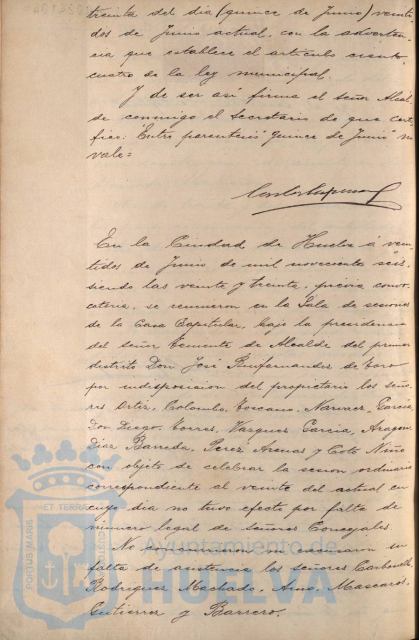 treinta del dia (quince de Junio) veinti
dos de Junio actual, con la adverten
cia que establece el articulo ciento
cuatro de la ley municipal.
Y de ser asi firma el señor Alcal
de conmigo el Secretario de que cer
tifico: Entre parentesis quince de Junio no
vale=
En la Ciudad de Huelva á vein
tidos de Junio de mil novecientos seis
siendo las veinte y treinta, previa convo
catoria, se reunieron en la Sala de sesiones
de la Casa Capitular, bajo la presidencia
del señor Teniente de Alcalde del primer
distrito Don José Ruifernandez de Toro
por indisposicion del propietario los seño
res Ortiz, Colombo, Toscano, Narvaez, Garcia,
Don Diego, Torres, Vazquez Garcia, Aragon,
Diaz Barreda, Perez Arenas y Coto Niño
con objeto de celebrar la sesion ordinaria
correspondiente al veinte del actual en
cuyo dia no tuvo efecto por falta de
numero legal de señores Concejales.
No concurrieron ni excusaron su
falta de asistencia los señores Carbonell,
Rodriguez Machado, Mascaros,
Gutierrez y Barrero.
PORTUS MARIS
ET TERRAE
CUSTODIO
Ayuntamiento de
HUELVA